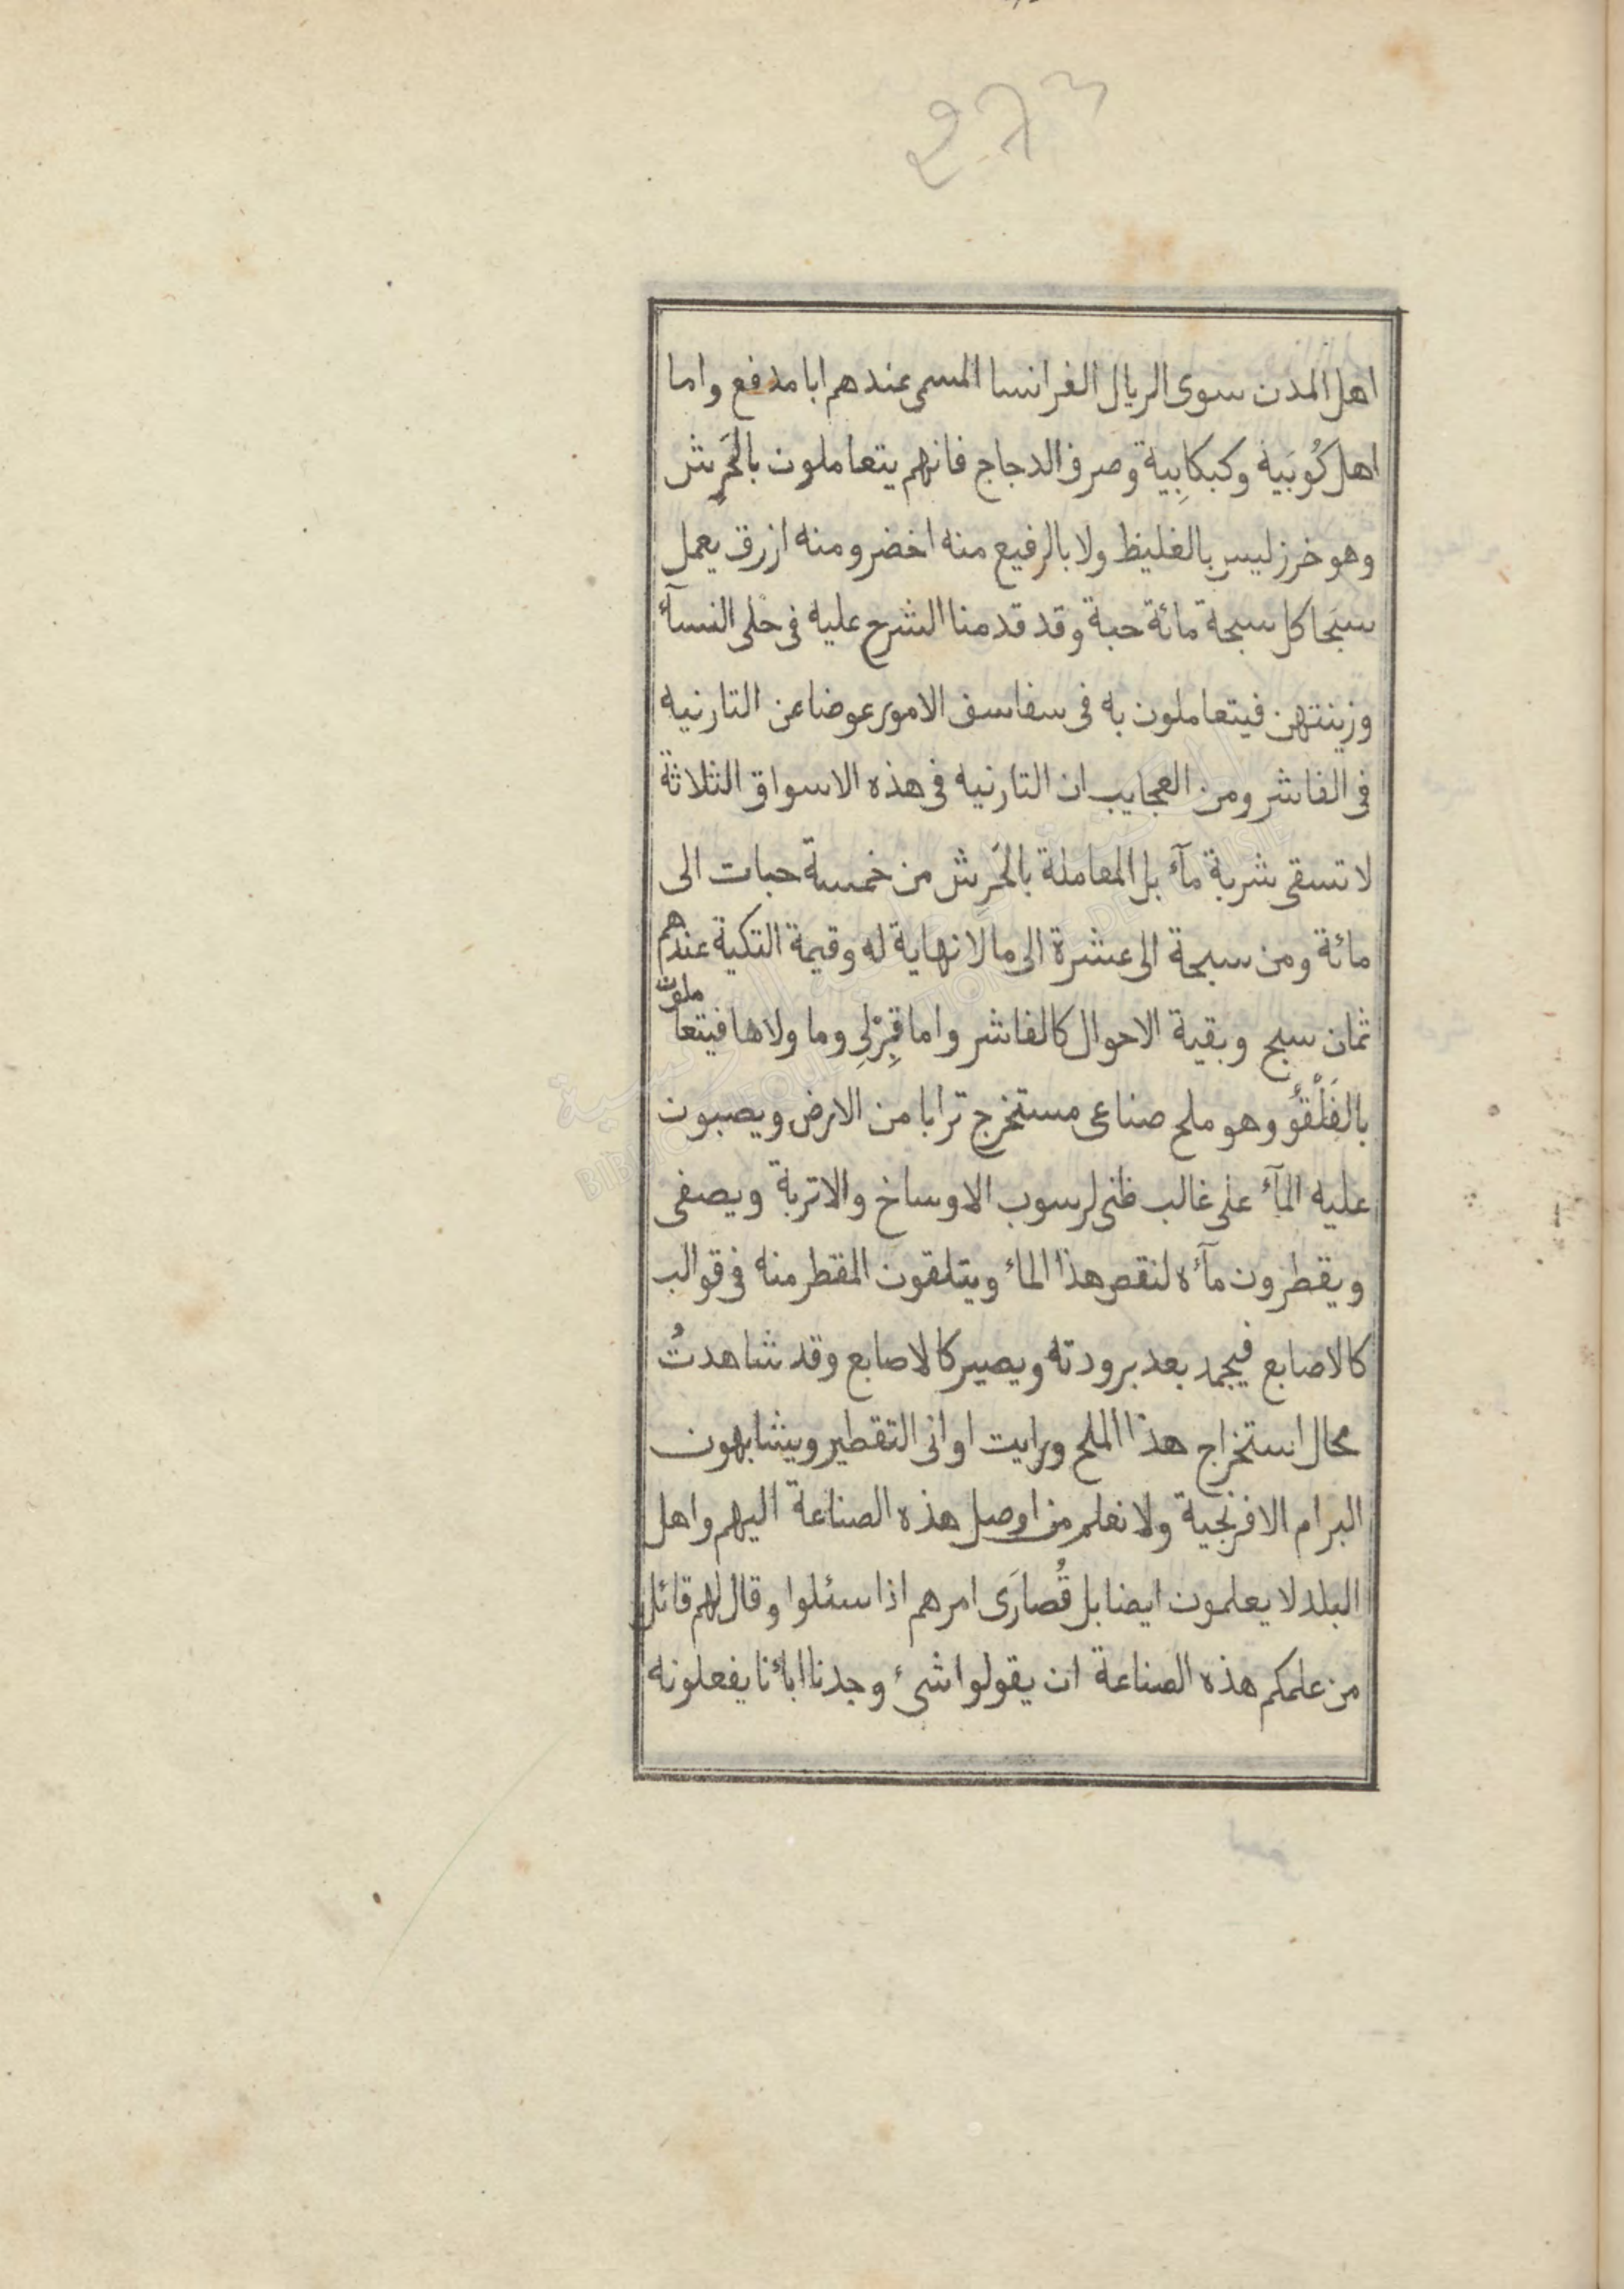 اهل المدن سوى الريال الفرانسا المسمى عندهم ابا مدفع واما
اهل كُوبَية وكبكابِية وصرف الدجاج فانهم يتعاملون بالحَرِش
وهو خرز ليس بالغليظ ولا بالرفيع منه اخضر ومنه ازرق يعمل
سبَحا كل سبحة مائة حبة وقد قدمنا الشرح عليه فى حُلى النسآء
وزينتهن فيتعاملون به فى سفاسف الامور عوضا عن التارنيه
فى الفاشر ومن العجايب ان التارنيه فى هذه الاسواق الثلاثة
لا تسقى شربة مآء بل المعاملة بالحَرِش من خمسة حبات الى
مائة ومن سبحة الى عشرة الى ما لا نهاية له وقيمة التكية عندهم
ثمان سبح وبقية الاحوال كالفاشر واما قِرْلِى وما ولاها فيتعاملون
بالفَلْقُو وهو ملح صناعى مستخرج ترابا من الارض ويصبون
عليه المآء على غالب ظنى لرسوب الاوساخ والاتربة ويصفى
ويقطرون مآءه لنقص هذا الماء ويتلقون المقطر منه فى قوالب
كالاصابع فيجمد بعد برودته ويصير كالاصابع وقد شاهدتُ
محال استخراج هذا الملح ورايت اوانى التقطير ويشابهون
البرام الافرنجية ولا نعلم من اوصل هذه الصناعة اليهم واهل
البلد لا يعلمون ايضا بل قُصارَى امرهم اذا سئلوا وقال لهم قائل
من علمكم هذه الصناعة ان يقولوا شىء وجدنا اباءنا يفعلونه